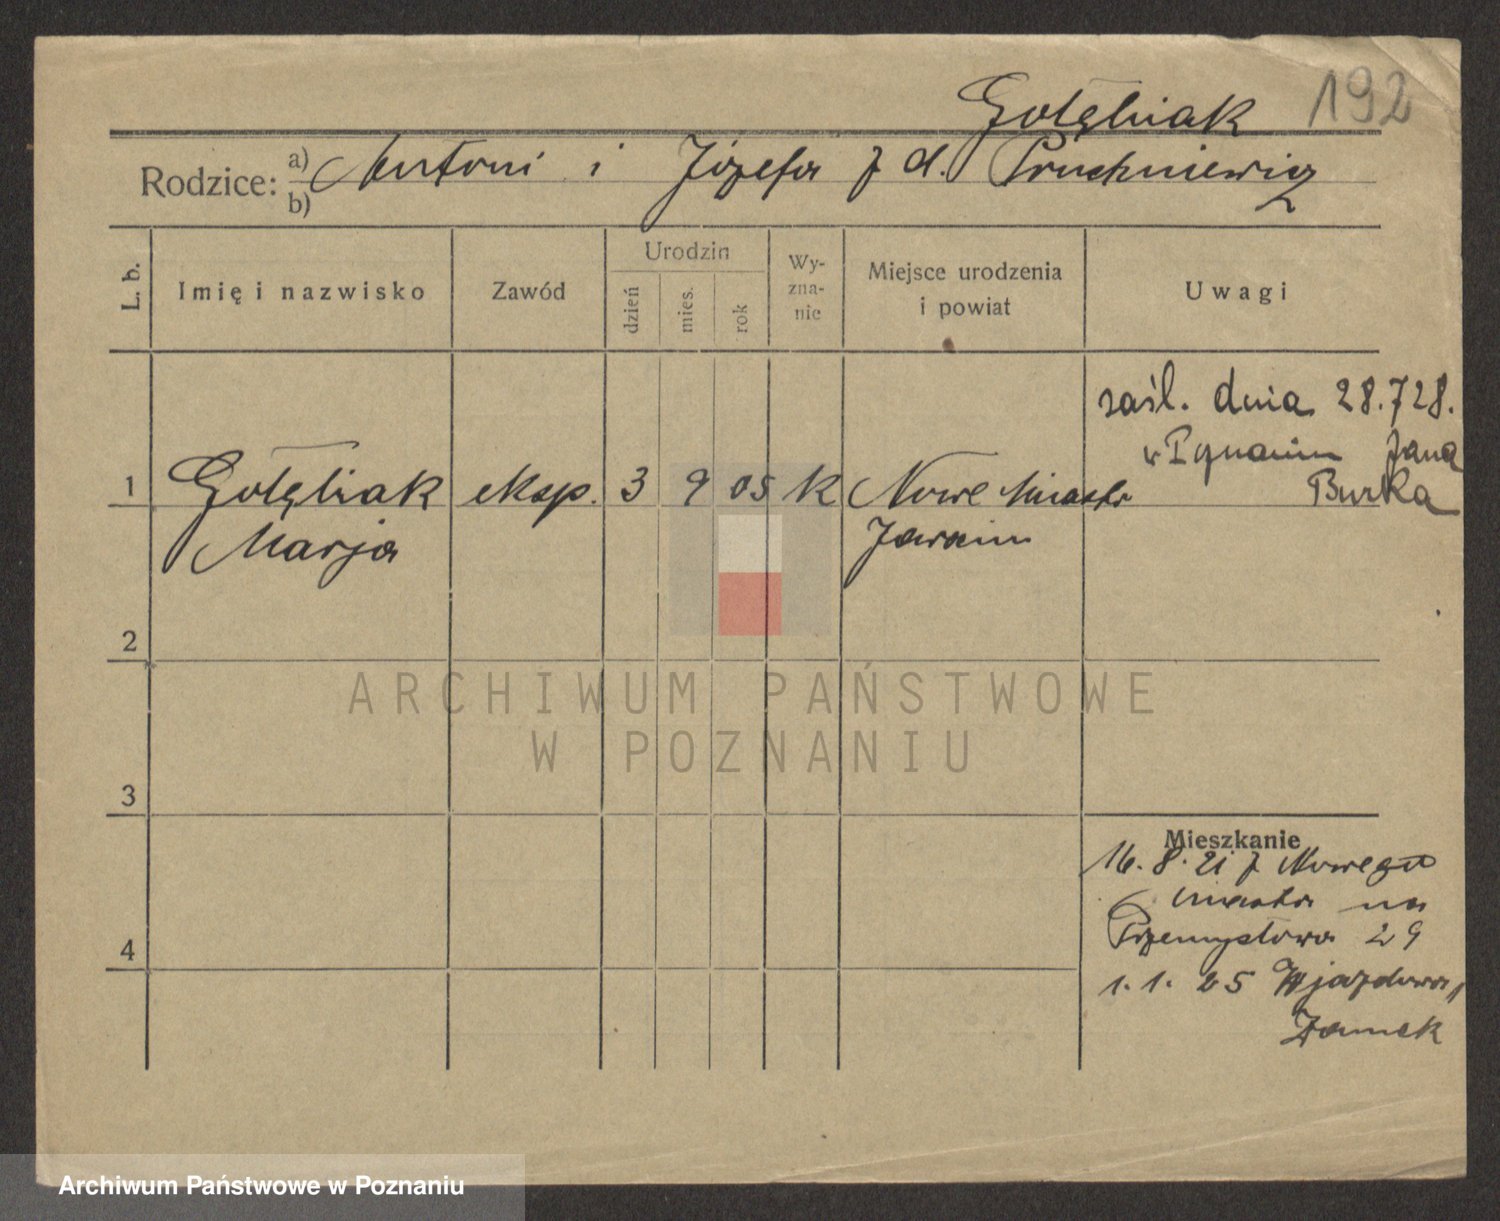 Gołębiak 192
Rodzice: a) Antoni i Józefa z d. Pruchniewicz
b)
L. b. Imię i nazwisko Zawód Urodzin dzień mies. rok Wyznanie Miejsce urodzenia i powiat Uwagi
zaśl. dnia 28.7 28.
Jana
Burka
1 Gołębiak eksp. 3 9 05 k Nowe Miasto
Marja Jarocin
2
3
4
Mieszkanie
16. 8. 21 z Nowego
miasta na
Przemysłowa 29
1. 1. 25 Wjazdowa,
Zamek
ARCHIWUM PAŃSTWOWE
W POZNANIU
Archiwum Państwowe w Poznaniu